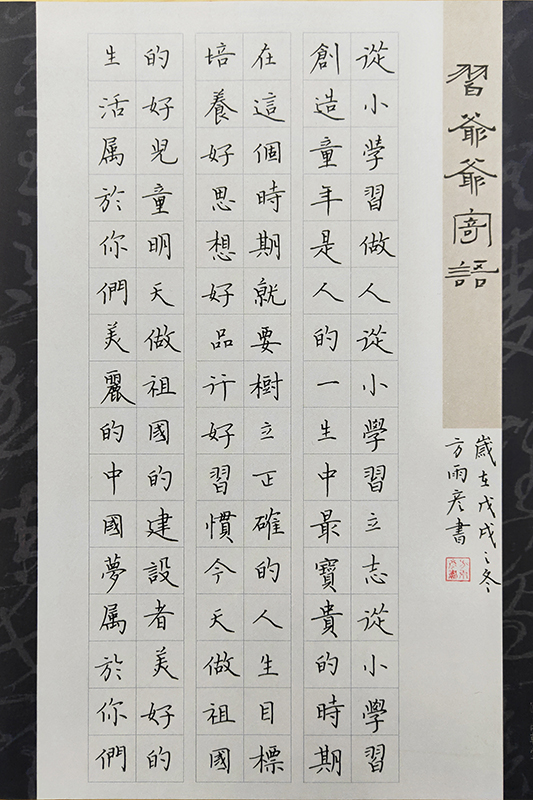 習爺爺寄語
從小學習做人從小學習立志從小學習
創造童年是人的一生中最寶貴的時期
在這個時期就要樹立正確的人生目標
培養好思想好品行好習慣今天做祖國
的好兒童明天做祖國的建設者美好的
生活属於你們美麗的中國夢属於你們
歲在戊戌之冬
方雨彦書